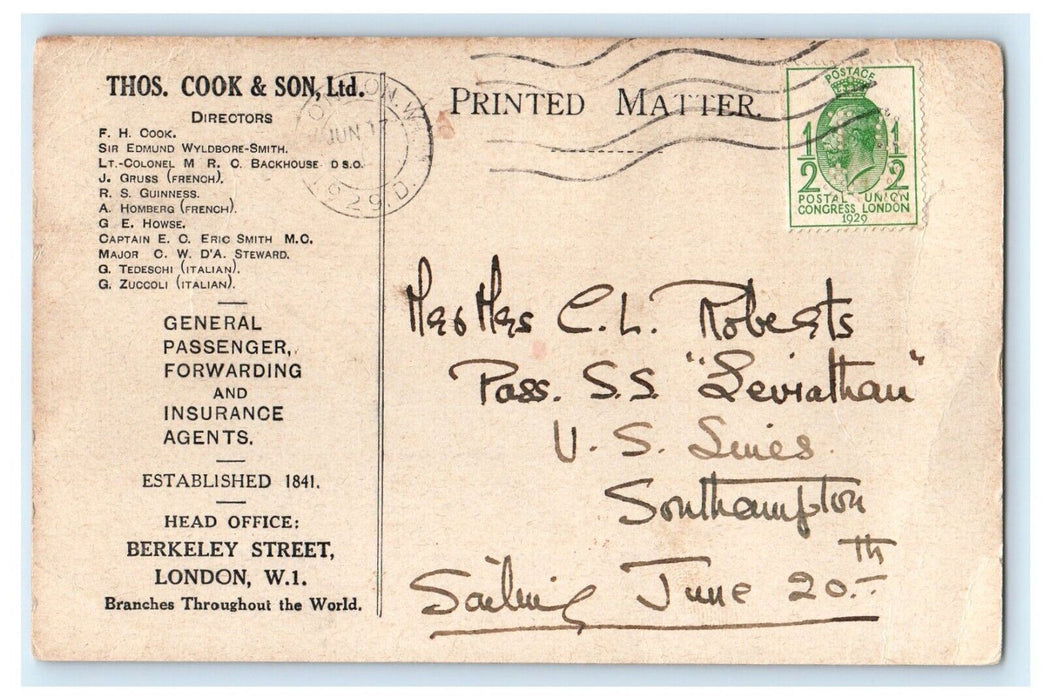 THOS. COOK & SON, Ltd.
DIRECTORS
F. H. COOK.
SIR EDMUND WYLDBORE-SMITH.
LT.-COLONEL M R. C. BACKHOUSE D S.O.
J. GRUSS (FRENCH).
R. S. GUINNESS.
A. HOMBERG (FRENCH).
G E. HOWSE.
CAPTAIN E. C. ERIC SMITH M.C.
MAJOR C. W. D'A. STEWARD.
G. TEDESCHI (ITALIAN).
G. ZUCCOLI (ITALIAN).
GENERAL
PASSENGER,
FORWARDING
AND
INSURANCE
AGENTS.
ESTABLISHED 1841.
HEAD OFFICE:
BERKELEY STREET,
LONDON, W.1.
Branches Throughout the World.
LONDON. W.1
JUN 17
1929. D.
PRINTED MATTER.
POSTAGE
1/2 1/2
POSTAL UNION
CONGRESS LONDON
1929
C. L. Roberts
Pass. S.S. "Leviathan"
U. S. Lines
Southampton
Sailing June 20th